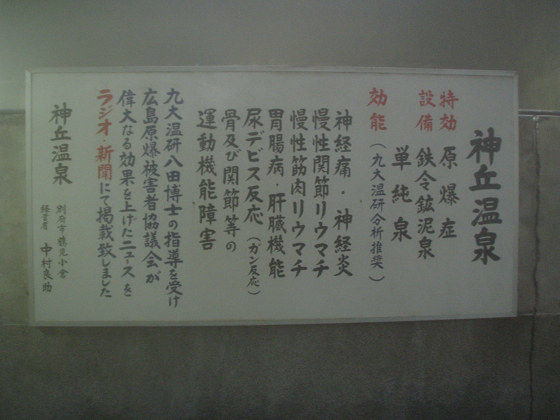 神丘温泉
特効 原爆症
設備 鉄令鉱泥泉
単純泉
効能(九大温研分析推奨)
神経痛・神経炎
慢性関節リウマチ
慢性筋肉リウマチ
胃腸病・肝臓機能
尿デビス反応(ガン反応)
骨及び関節等の
運動機能障害
九大温研八田博士の指導を受け
広島原爆被害者協議会が
偉大なる効果を上げたニュースを
ラジオ 新聞にて掲載致しました
神丘温泉
別府市鶴見小倉
経営者 中村良助